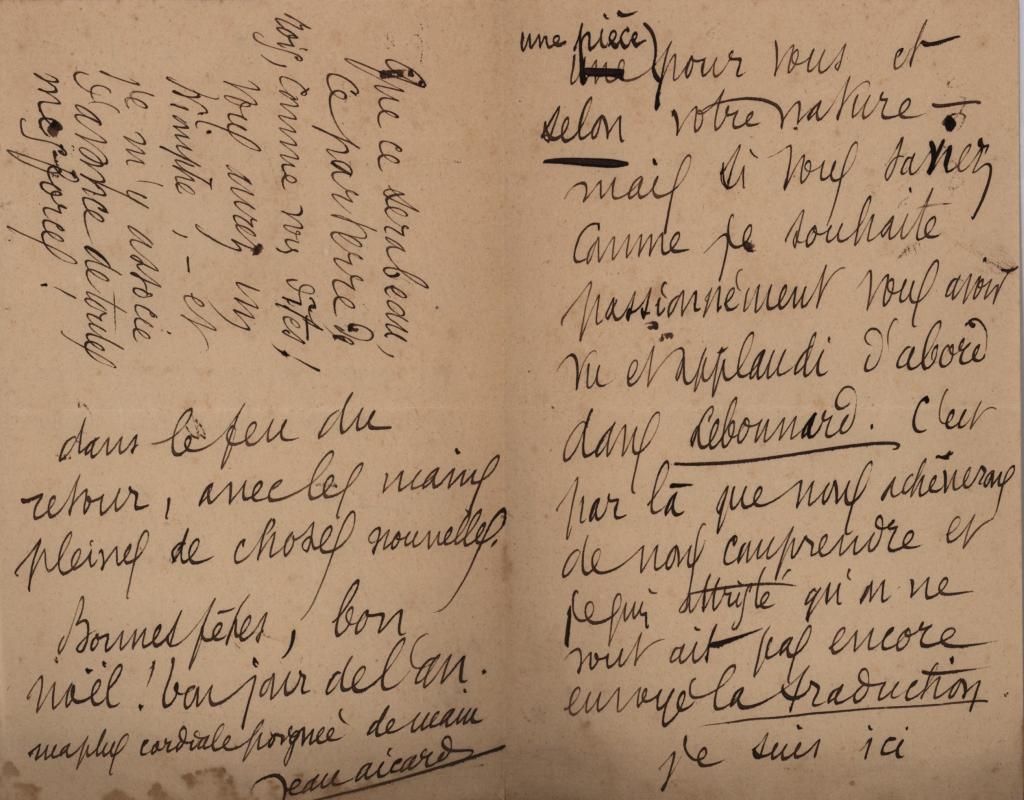 une pièce
une (pour vous et
selon votre nature —
mais si vous saviez
comme je souhaite
passionnément vous avoir
vu et applaudi d'abord
dans Lebonnard. C'est
par là que nous achèverons
de nous comprendre et
je suis attristé qu'on ne
vous ait pas encore
envoyé la traduction.
je suis ici
dans le feu du
retour, avec les mains
pleines de choses nouvelles.
Bonnes fêtes, bon
noël! bon jour de l'an.
ma plus cordiale poignée de main
Jean Aicard
Que ce sera beau,
ce parterre de
rois, comme vous dites!
Vous aurez un
triomphe, - et
je m'y associe
d'avance de toutes
mes forces!